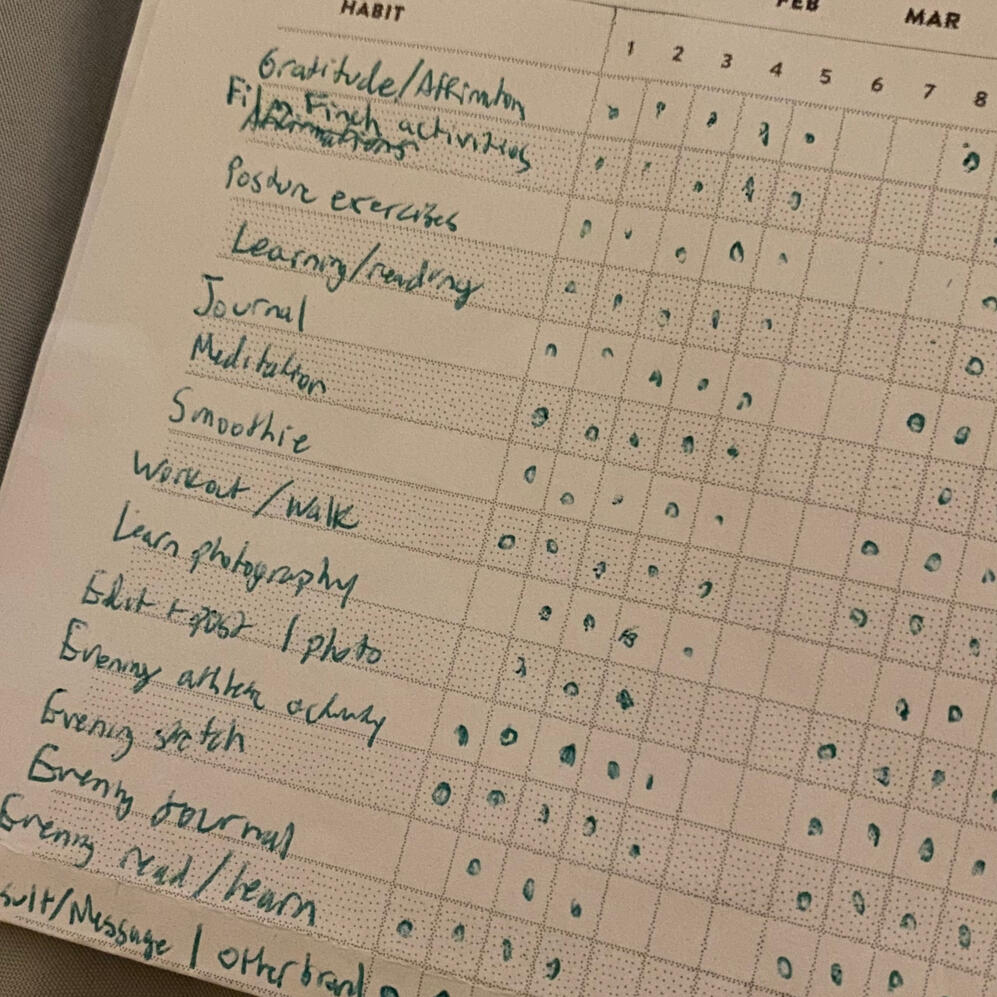 FEB MAR
HABIT
1 2 3 4 5 6 7 8
Gratitude/Affirmation
Film Finch activities
Affirmations
Posture exercises
Learning/reading
Journal
Meditation
Smoothie
Workout / Walk
Learn photography
Edit + post 1 photo
Evening athletic activity
Evening stretch
Evening Journal
Evening read/learn
/Message 1 other brand